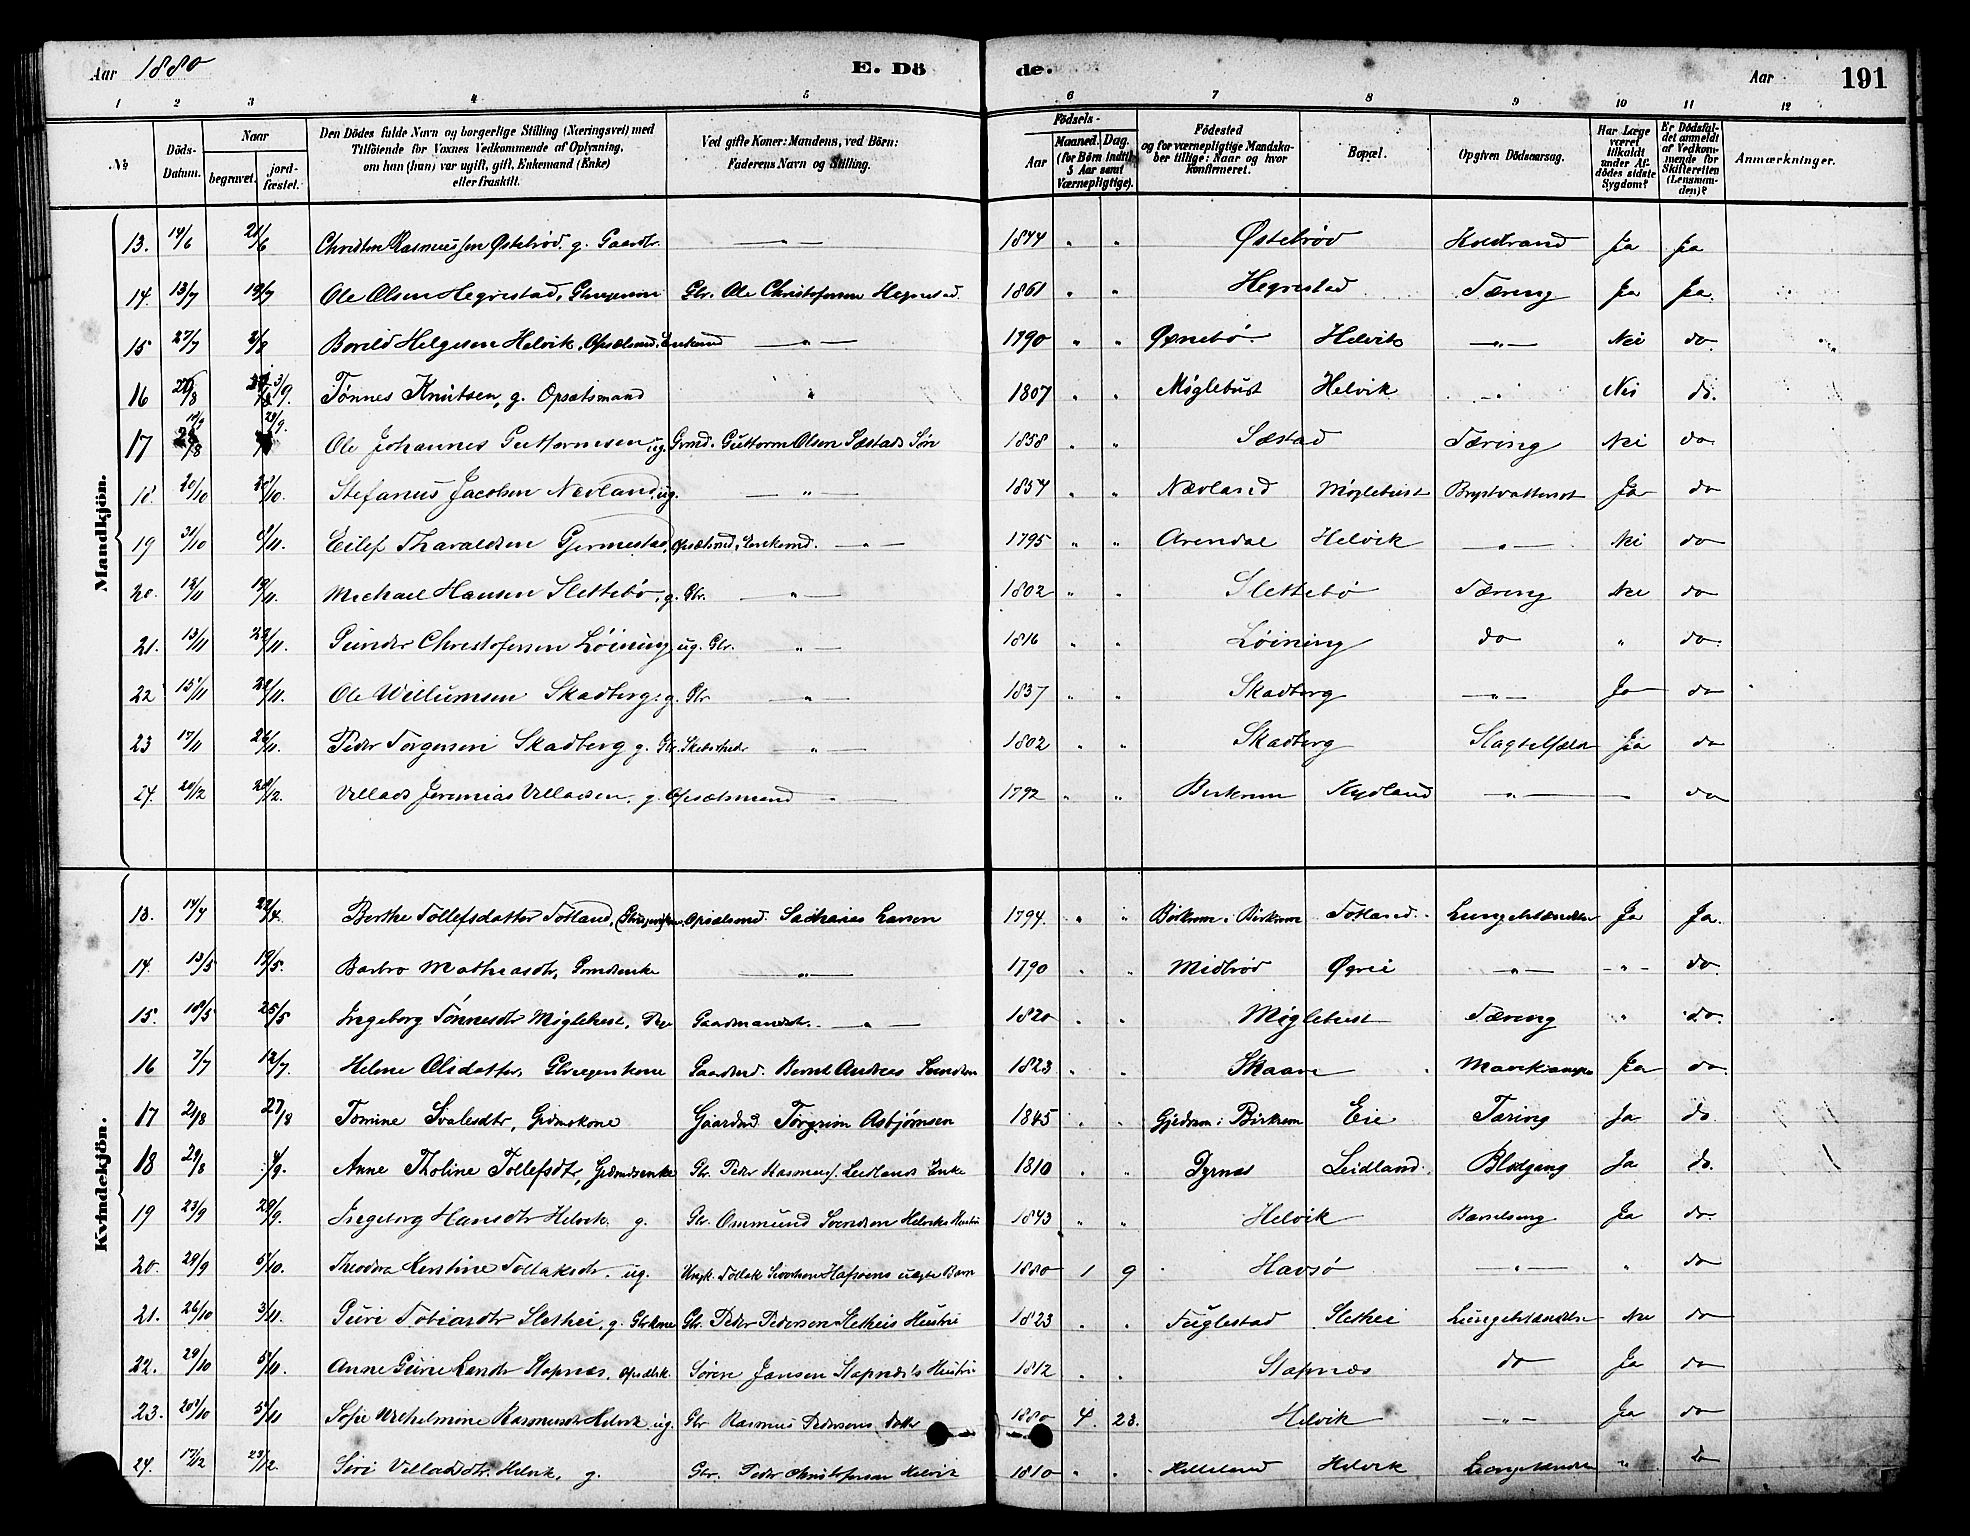 Aar 1880
E. Döde.
Aar 191
1 2 3 4 5 6 7 8 9 10 11 12
No Döds-Datum. Naar begravet. jordfæstet. Den Dödes fulde Navn og borgerlige Stilling (Næringsvei) med Tilföiende for Voxnes Vedkommende af Oplysning, om han (hun) var ugift, gift, Enkemand (Enke) eller fraskilt. Ved gifte Koner: Mandens, ved Börn: Faderens Navn og Stilling. Födsels- Aar Maaned. Dag. (for Börn indtil 5 Aar samt Værnepligtige). Födested og for værnepligtige Mandskaber tillige: Naar og hvor Konfirmeret. Bopæl. Opgiven Dödsaarsag. Har Læge været tilkaldt under Afdödes sidste Sygdom? Er Dödsfaldet anmeldt af Vedkommende for Skifteretten (Lensmanden)? Anmærkninger.
Mandkjön.
13. 14/6 21/6 Christen Rasmussen Østebrød, g. Gaardbr. — " — 1844 " " Østebrød Koldbrand Ja Ja
14. 13/7 19/7 Ole Olsen Hegrestad, Gbr. Ole Christofersen Hegrestad 1861 " " Hegrestad Tæring Ja Ja.
15 27/7 2/8 Borild Helgesen Helvik, Opsætsmd, Enkemd — " — 1790 " " Øxnebø Helvik — " — Nei do.
16 3/9. Tønnes Knutsen, g. Opsætsmand " 1807 " " Møglebust Helvik " Nei do.
17 Ole Johannes Guttormsen ug. Grmd. Guttorm Olsen Sæstads Søn 1858 " " Sæstad Tæring Nei do
18. 20/10 /10. Stefanus Jacobsen Nevland, ug. — " — 1854 " " Nævland Møglebust Ja do
19 31/10 /11. Eilef Tharaldsen Gjermestad, Opsætsmd, Enkemd. — " — 1795 " " Arendal Helvik — " — Nei do
20. 12/11 19/11. Michael Hansen Slettebø, g. Gbr. — " — 1802 " " Slettebø Tæring Nei do
21. 13/11 22/11. Gunder Christofersen Løining ug. Gbr. " — 1816 " " Løining do " do.
22 15/11 22/11. Ole Willumsen Skadberg, g. Gbr — " — 1837 " " Skadberg — " — Ja do
23 17/11 26/11. Peder Torgersen Skadberg g. Gbr. — " — 1802 " " Skadberg Ja do
24. 20/12 28/12. Villads Jeremias Villadsen, g. Opsætsmand — " — 1792 " " Birkrem Hydland — " — — do
Kvindekjön.
13. 14/4 22/4. Berthe Tollefsdatter Totland, Opsætsmd. Sacharias Larsen 1794. " " Birkrem i Birkrem Totland. Lungebetændelse Ja Ja.
14. 13/5 19/5. Barbro Mathiasdtr, Grmdsenke — " — 1790 " " Midbrød Øgrei — " — — " — do.
15. 18/5 25/5 Ingeborg Tønnesdtr Møglebust, Gaardmandsdtr. — " — 1820 " " Møglebust Tæring " do.
16 7/7 12/7. Helene Olsdatter, Gaardmd. Bernt Andreas 1823 " " Skaare Mavekrampe Ja do.
17 21/8 27/8 Tomine Svalesdtr, Grdmskone Gaardmd Torgrim Asbjørnsen 1845 " " Gjedrem i Birkrem Eie Tæring Ja do.
18 29/8 4/9. Anne Tholine Tollefsdtr, Grdmdsenke Gbr. Peder Rasmus. Leidlands Enke 1810 " " Dyrnæs Leidland. Blodgang Ja do.
19 23/9 29/9. Ingeborg Hansdtr Helvik. g. Gbr. Ommund Svendsen Helviks Hustru 1843 " " Helvik Barselseng Ja do.
20. 29/9 5/10. Theodora Kirstine Tollaksdr. ug. Ungk. Tollak Havsøens uægte Barn 1880 1 9 Havsø — " — " do
21. 26/10 3/11. Guri Tobiasdtr Slethei, g. Gbrkone Gbr. Peder Pedersen Sletheis Hustru 1823 " " Fuglestad Slethei Lungebetændelse Nei do
22. 29/10 5/11. Anne Gurine Stapnæs, Søren Jansen Stapnæs's Hustru 1812 " " Stapnæs do Ja do
23. 20/10 5/11 Sofie Wilhelmine Rasmusdtr Helvik ug. Gbr Rasmus Pedersens datter 1880 4. 23. Helvik — " — Ja do
24. 17/12 23/12. Siri Villadsdtr. Helvik, g. Gbr. Peder Christofersen Helvik 1810 " " Helleland Helvik Lungebetændelse " do